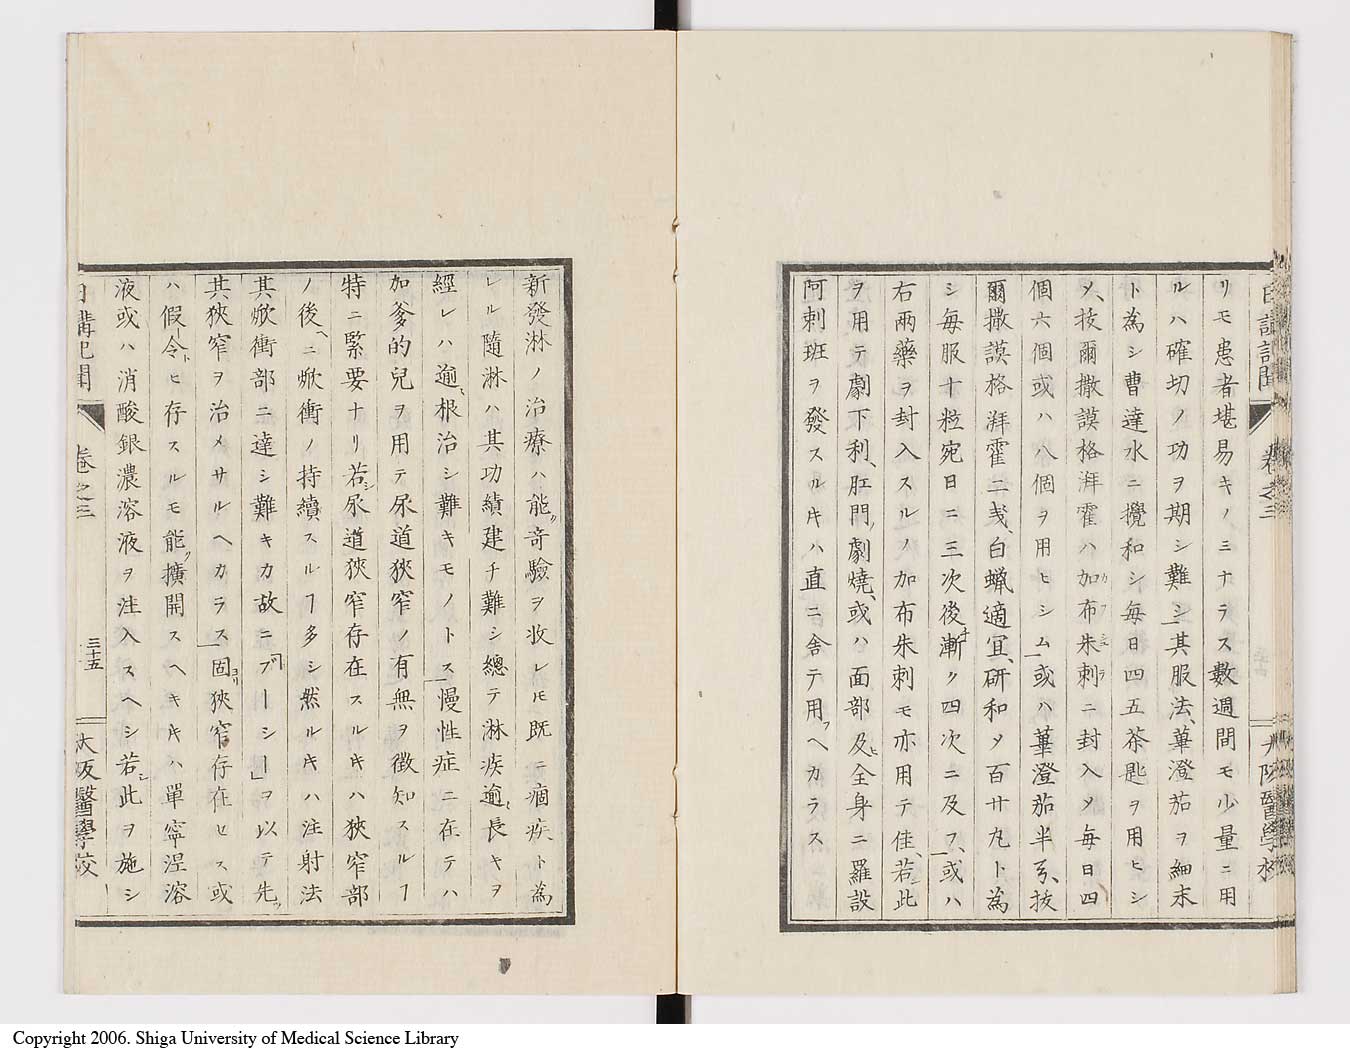 日講記聞 卷之三 大阪醫學校
リモ患者堪易キノミナラス數週間モ少量ニ用
ルハ確切ノ功ヲ期シ難シ其服法、蓽澄茄ヲ細末
ト為シ曹達水ニ攪和シ毎日四五茶匙ヲ用ヒシ
メ、拔爾撒謨格湃霍ハ加布朱刺ニ封入メ毎日四
個六個或ハ八個ヲ用ヒシム或ハ蓽澄茄半、拔
爾撒謨格湃霍二、白蝋適宜、研和メ百廿丸ト為
シ毎服十粒宛日ニ三次後漸ク四次ニ及フ、或ハ
右兩藥ヲ封入スルノ加布朱刺モ亦用テ佳、若此
ヲ用テ劇下利、肛門劇燒、或ハ面部及全身ニ羅設
阿刺班ヲ發スル𪜈ハ直ニ舍テ用ヘカラス
新發淋ノ治療ハ能竒驗ヲ收レ𪜈既ニ痼疾ト為
レル隨淋ハ其功績建チ難シ總テ淋疾逾長キヲ
經レハ逾根治シ難キモノトス慢性症ニ在テハ
加爹的兒ヲ用テ尿道狹窄ノ有無ヲ徴知スルヿ
特ニ緊要ナリ若尿道狹窄存在スルキハ狹窄部
ノ後ニ焮衝ノ持續スルヿ多シ然ルキハ注射法
其焮衝部ニ達シ難キカ故ニブーシーヲ以テ先
其狹窄ヲ治メサルヘカラス固狹窄存在セス或
ハ假令ヒ存スルモ能擴開スヘキキハ單寧涅溶
液或ハ消酸銀濃溶液ヲ注入スヘシ若此ヲ施シ
日講記聞 卷之三 三十五 大阪醫學校
Copyright 2006. Shiga University of Medical Science Library